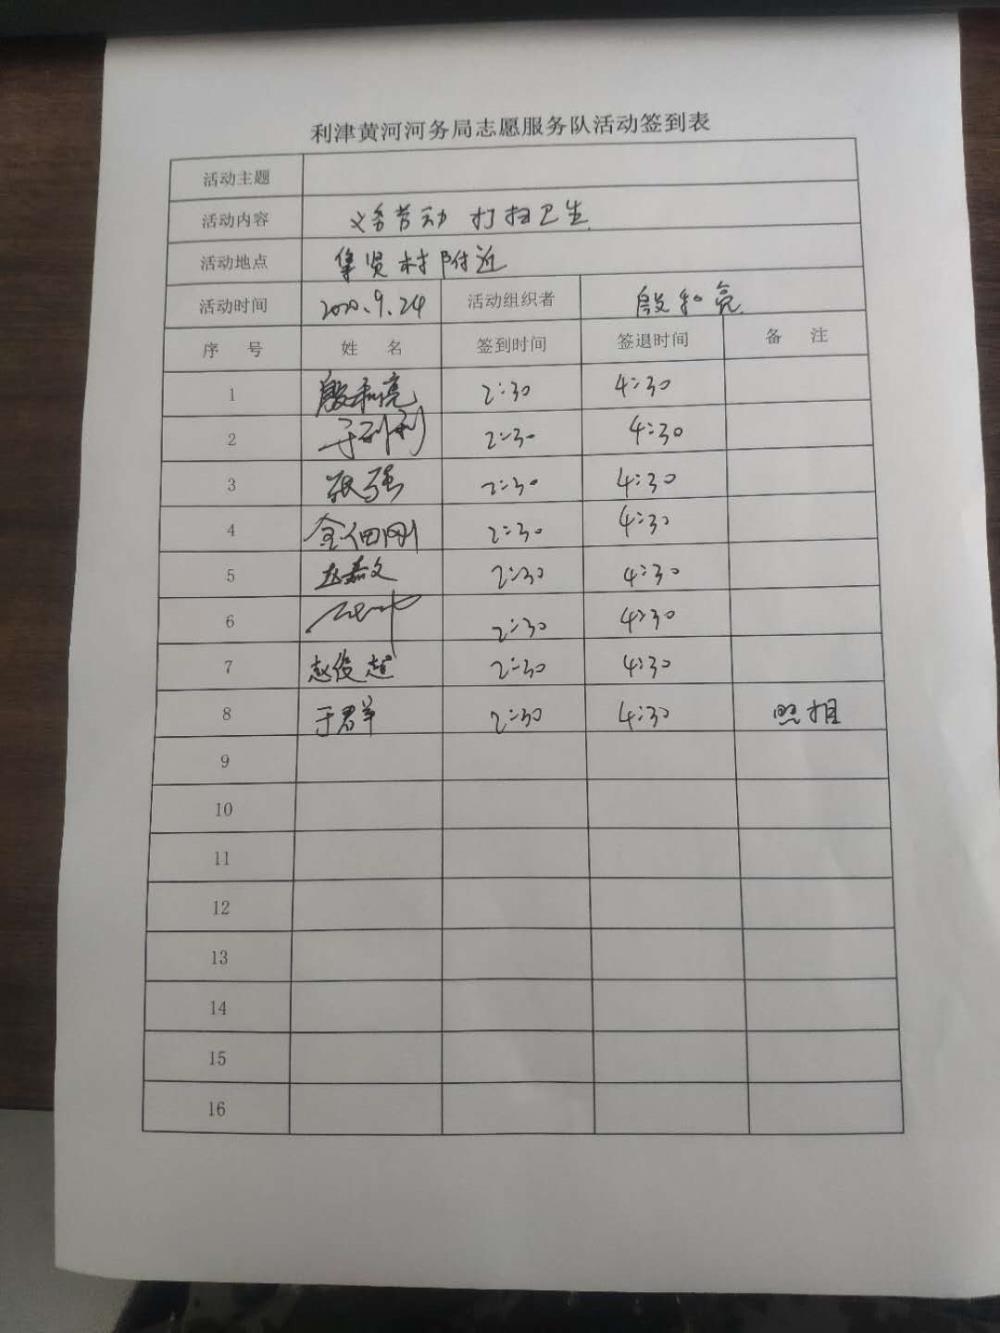 利津黄河河务局志愿服务队活动签到表
活动主题
活动内容 义务劳动 打扫卫生
活动地点 集贤村附近
活动时间 2020.9.24 活动组织者 殷和亮
序 号 姓 名 签到时间 签退时间 备 注
1 殷和亮 2:30 4:30
2 2:30 4:30
3 张强 2:30 4:30
4 2:30 4:30
5 2:30 4:30
6 2:30 4:30
7 赵俊超 2:30 4:30
8 于君羊 2:30 4:30 照相
9
10
11
12
13
14
15
16